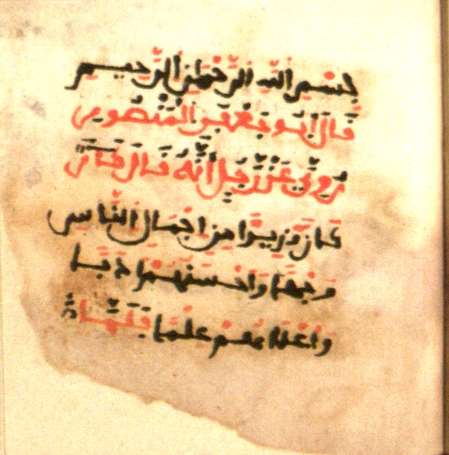 بسم الله الرحمن الرحيم
قال أبو جعفر المنصور
روي عن رجل أنه قال
كان وزيرا من اجمال الناس
وجها واحسنهم ادبا
واعلامهم علما فلما